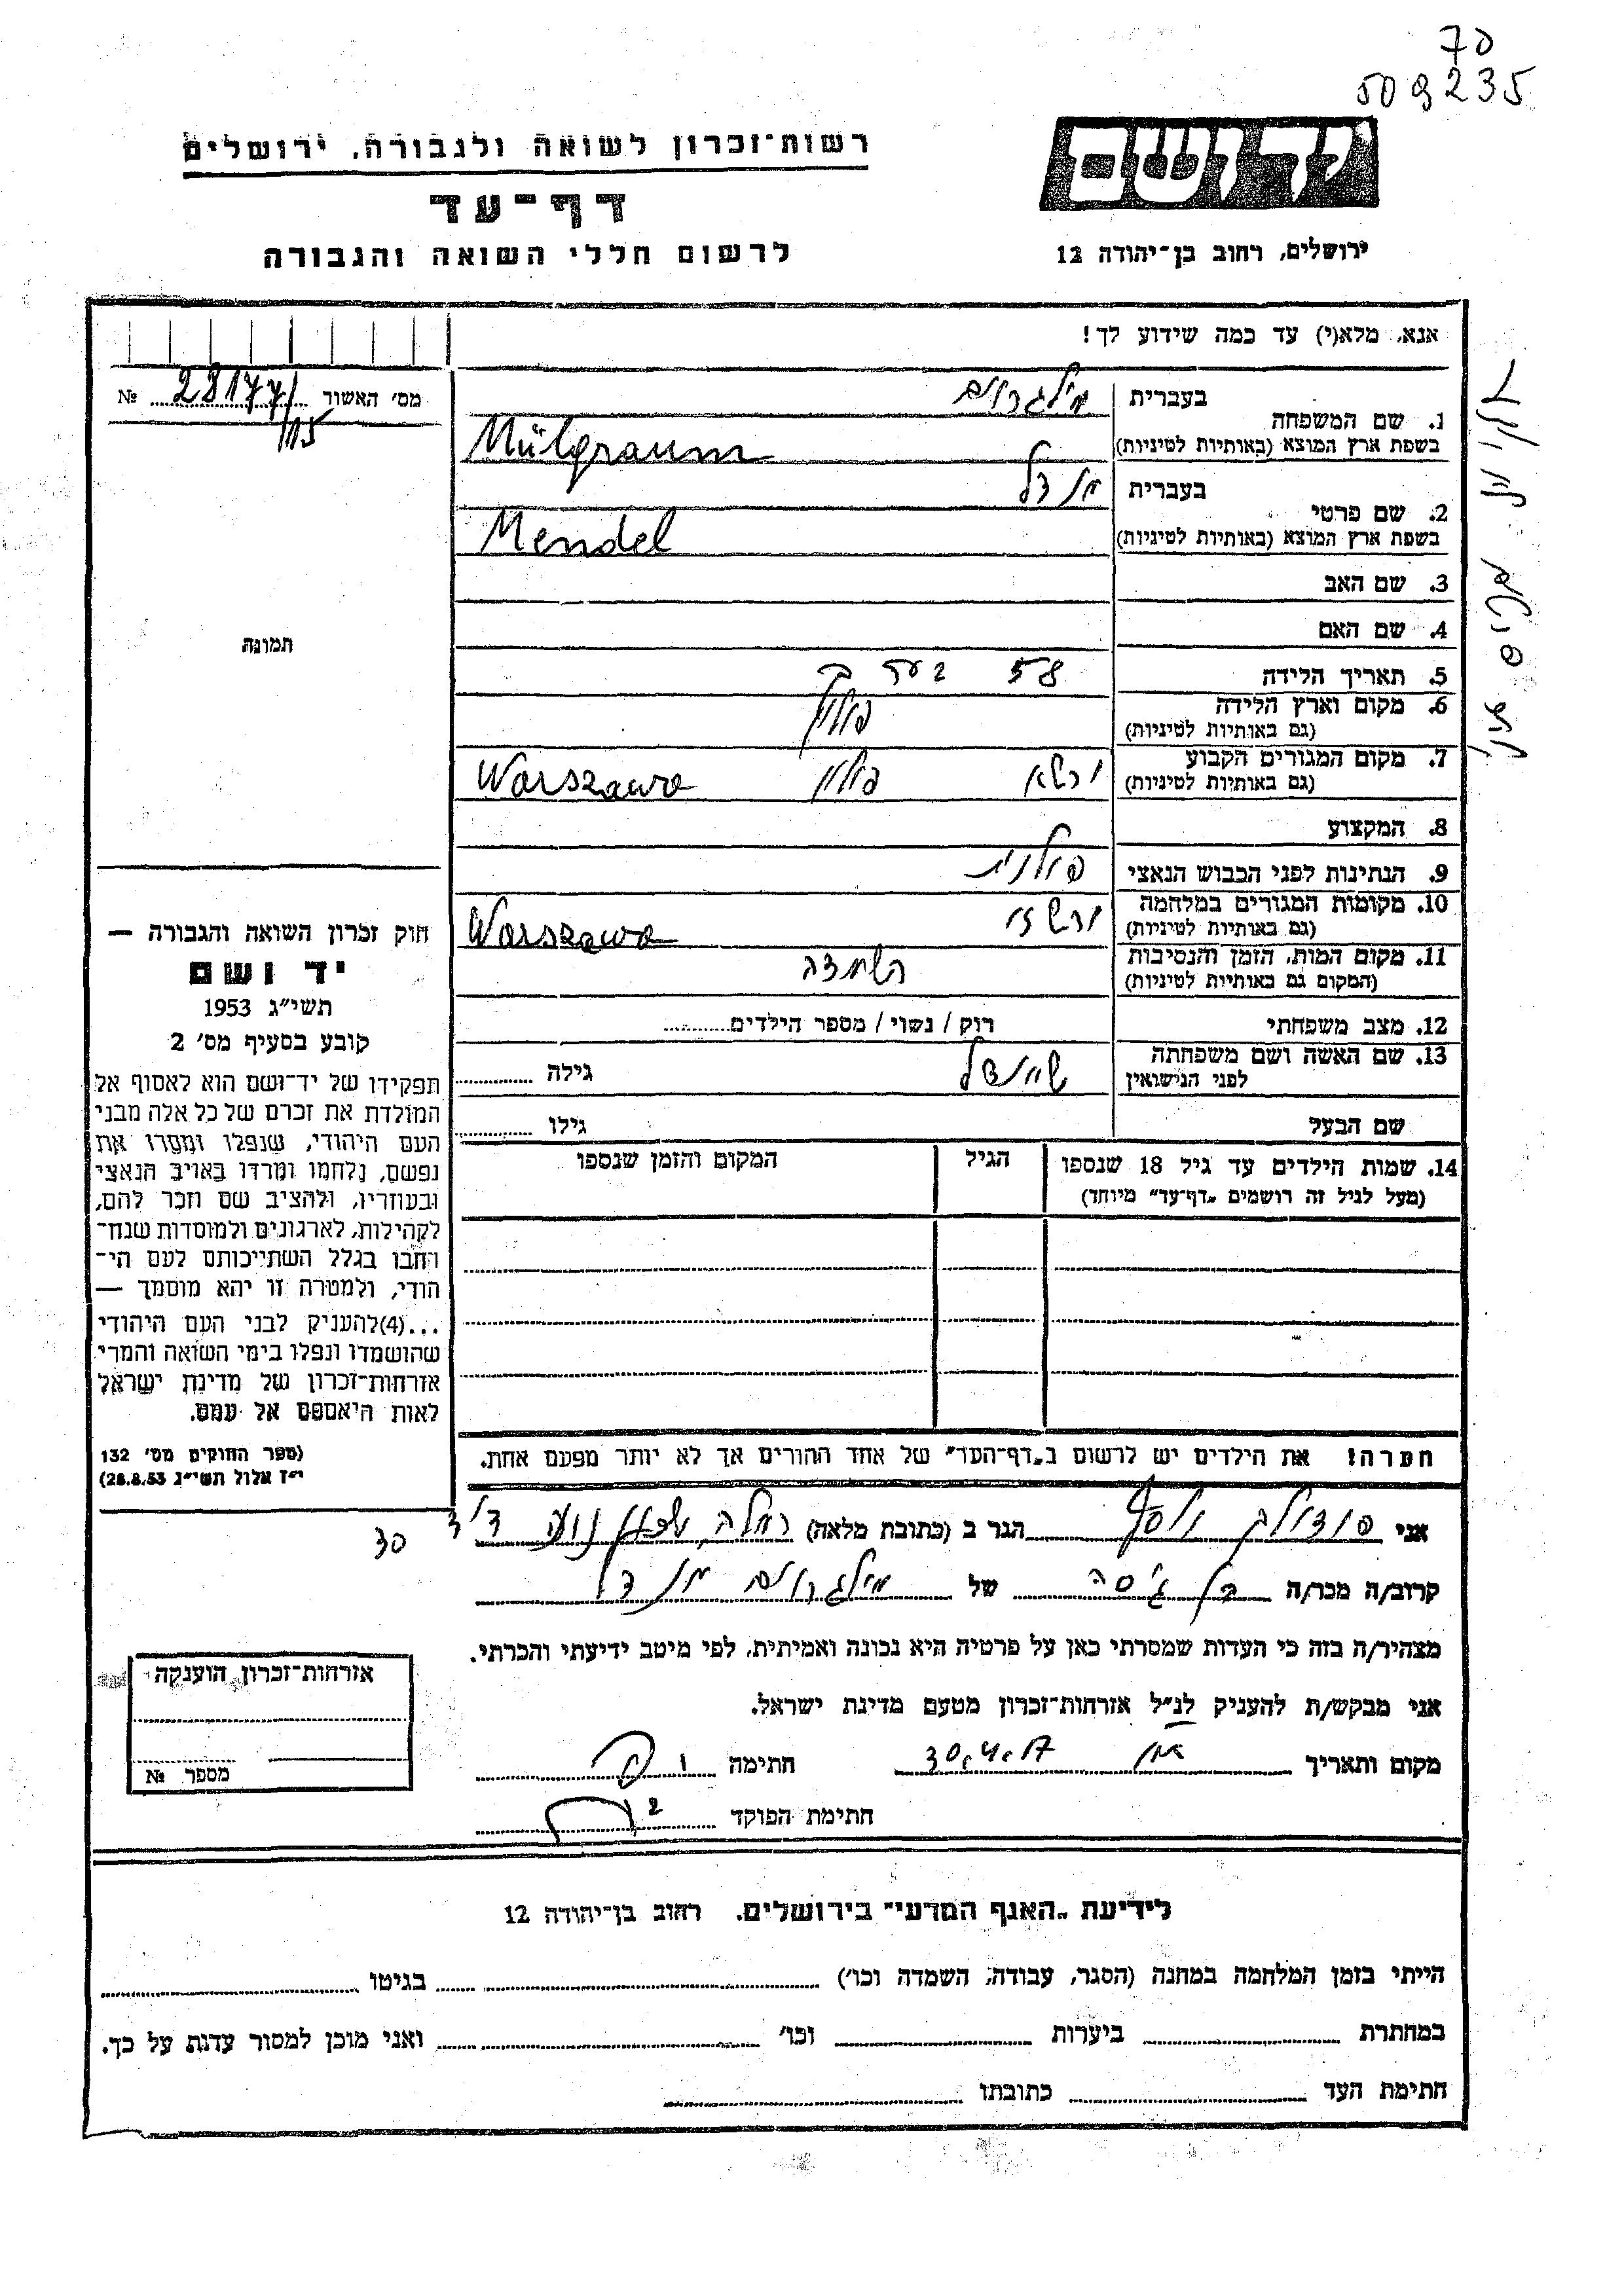 70
509235
רשות־זכרון לשואה ולגבורה, ירושלים
דף־עד
לרשום חללי השואה והגבורה
יד ושם
ירושלים, רחוב בן־יהודה 12
אנא, מלא(י) עד כמה שידוע לך!
מס׳ האשור № 28177/
115
1. שם המשפחה
בעברית מילגרום
בשפת ארץ המוצא (באותיות לטיניות) Mülgraum
2. שם פרטי
בעברית מנדל
בשפת ארץ המוצא (באותיות לטיניות) Mendel
3. שם האב
4. שם האם
תמונה
5. תאריך הלידה 58 בערך
6. מקום וארץ הלידה פולין
(גם באותיות לטיניות)
7. מקום המגורים הקבוע ורשא פולין Warszawa
(גם באותיות לטיניות)
8. המקצוע
9. הנתינות לפני הכבוש הנאצי פולנית
10. מקומות המגורים במלחמה Warszawa
(גם באותיות לטיניות)
11. מקום המות, הזמן והנסיבות השמדה
(המקום גם באותיות לטיניות)
12. מצב משפחתי רוק / נשוי / מספר הילדים
13. שם האשה ושם משפחתה שיינדל גילה
לפני הנישואין
שם הבעל גילו
14. שמות הילדים עד גיל 18 שנספו הגיל המקום והזמן שנספו
(מעל לגיל זה רושמים „דף־עד״ מיוחד)
חוק זכרון השואה והגבורה —
יד ושם
תשי״ג 1953
קובע בסעיף מס׳ 2
תפקידו של יד־ושם הוא לאסוף אל
המולדת את זכרם של כל אלה מבני
העם היהודי, שנפלו ומסרו את
נפשם, נלחמו ומרדו באויב הנאצי
ובעוזריו, ולהציב שם וזכר להם,
לקהילות, לארגונים ולמוסדות שנח־
רבו בגלל השתייכותם לעם הי־
הודי, ולמטרה זו יהא מוסמך —
...(4)להעניק לבני העם היהודי
שהושמדו ונפלו בימי השואה והמרי
אזרחות־זכרון של מדינת ישראל
לאות היאספם אל עמם.
(ספר החוקים מס׳ 132
י״ז אלול תשי״ג 28.8.53)
הערה! את הילדים יש לרשום ב„דף־העד״ של אחד ההורים אך לא יותר מפעם אחת.
אני יוסף הגר ב (כתובת מלאה) רמלה
30
קרוב/ה מכר/ה בן גיסה של מילגרום מנדל
מצהיר/ה בזה כי העדות שמסרתי כאן על פרטיה היא נכונה ואמיתית, לפי מיטב ידיעתי והכרתי.
אני מבקש/ת להעניק לנ״ל אזרחות־זכרון מטעם מדינת ישראל.
מקום ותאריך חתימה
חתימת הפוקד
אזרחות־זכרון הוענקה
מספר №
לידיעת „האגף המדעי״ בירושלים, רחוב בן־יהודה 12
הייתי בזמן המלחמה במחנה (הסגר, עבודה, השמדה וכו׳) בגיטו
במחתרת ביערות וכו׳ ואני מוכן למסור עדות על כך.
חתימת העד כתובתו